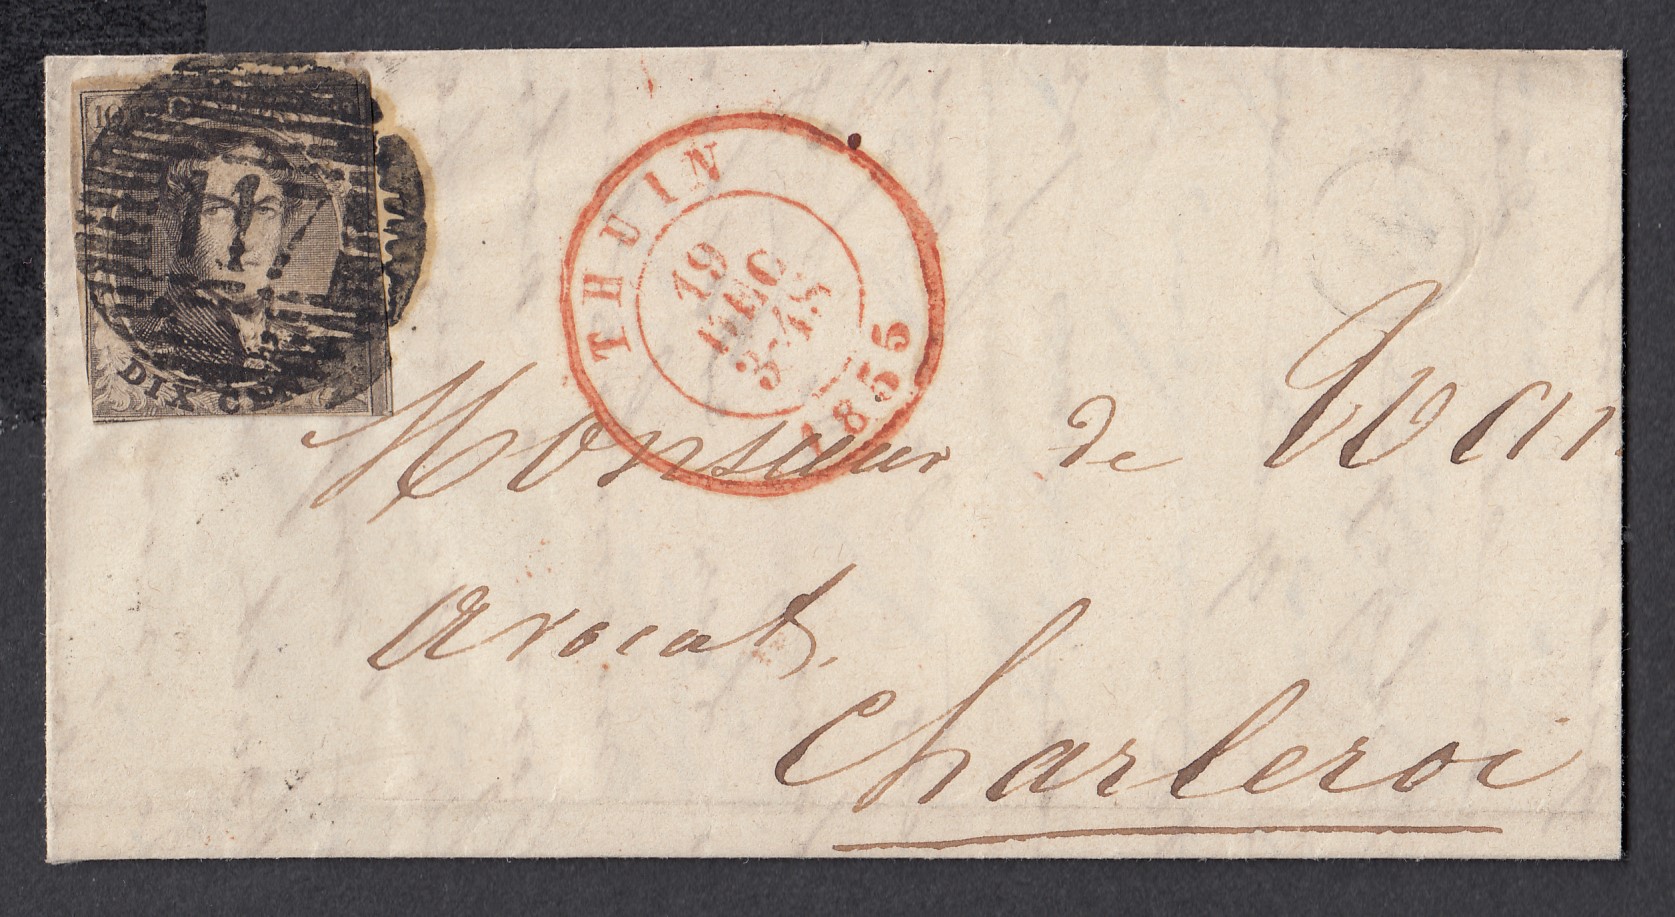 10
DIX CEN
THUIN
19
DEC
3-4S
1855
Monsieur de Wan
avocat.
Charleroi